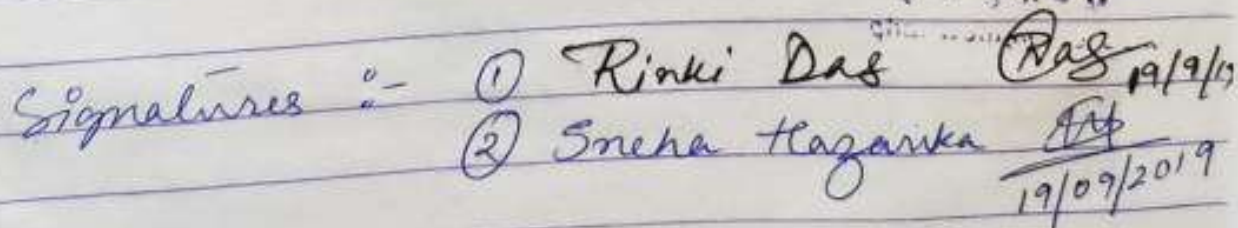 Signatures :- ① Rinki Das Das 19/9/19
② Sneha Hazarika
19/09/2019